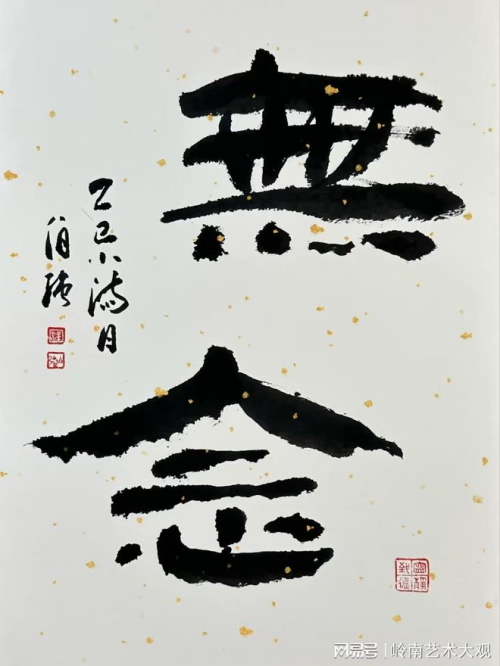 無念
乙巳小满月
网易号 | 岭南艺术大观